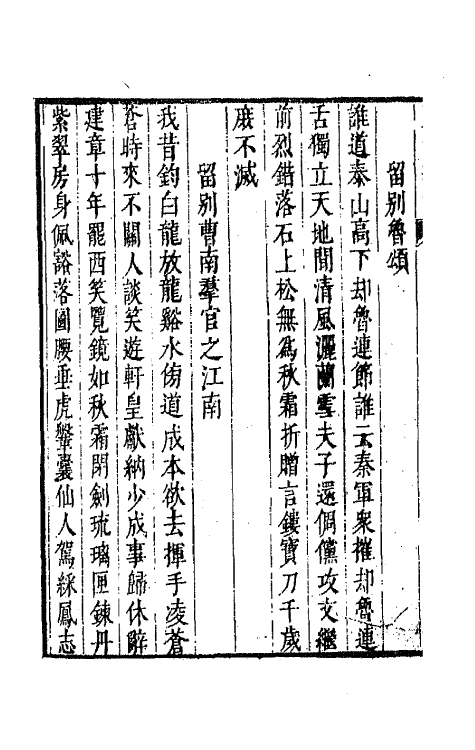 留别魯頌
誰道泰山高下却魯連節誰云秦軍衆摧却魯連
舌獨立天地間清風灑蘭雪夫子還倜儻攻文繼
前烈錯落石上松無為秋霜折贈言鏤寳刀千歲
庻不滅
留别曹南羣官之江南
我昔釣白龍放龍谿水傍道成本欲去揮手凌蒼
蒼時來不關人談笑遊軒皇獻納少成事歸休辭
建章十年罷西笑覽鏡如秋霜閉劍琉璃匣鍊丹
紫翠房身佩豁落圖腰垂虎鞶囊仙人駕綵鳳志